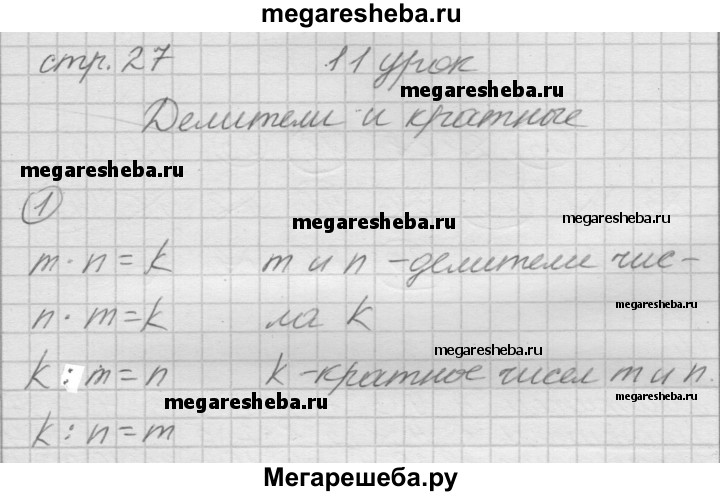 megaresheba.ru
стр. 27 11 урок
megaresheba.ru
Делители и кратные
megaresheba.ru
1
megaresheba.ru
megaresheba.ru
m · n = k m и n - делители чис-
megaresheba.ru
n · m = k ла k
megaresheba.ru
k : m = n k - кратное чисел m и n.
megaresheba.ru
megaresheba.ru
k : n = m
Мегарешеба.ру